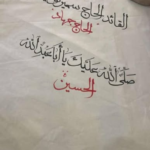 القائد الحاج سمير
الحاج جهاد
صلى الله عليك يا أبا عبد الله
الحسين